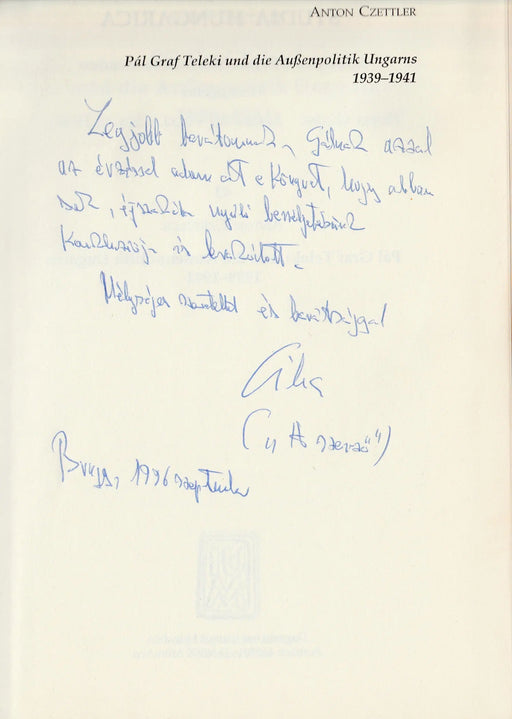 ANTON CZETTLER
Pál Graf Teleki und die Außenpolitik Ungarns
1939–1941
Legjobb barátomnak, Gálnak azzal
az érzéssel adom át e könyvet, hogy abban
sok, éjszakába nyúló beszélgetésünk
konklúziója is lecsapódott.
Mélységes szeretettel és barátsággal
("A szerző")
Brugg, 1996 szeptember